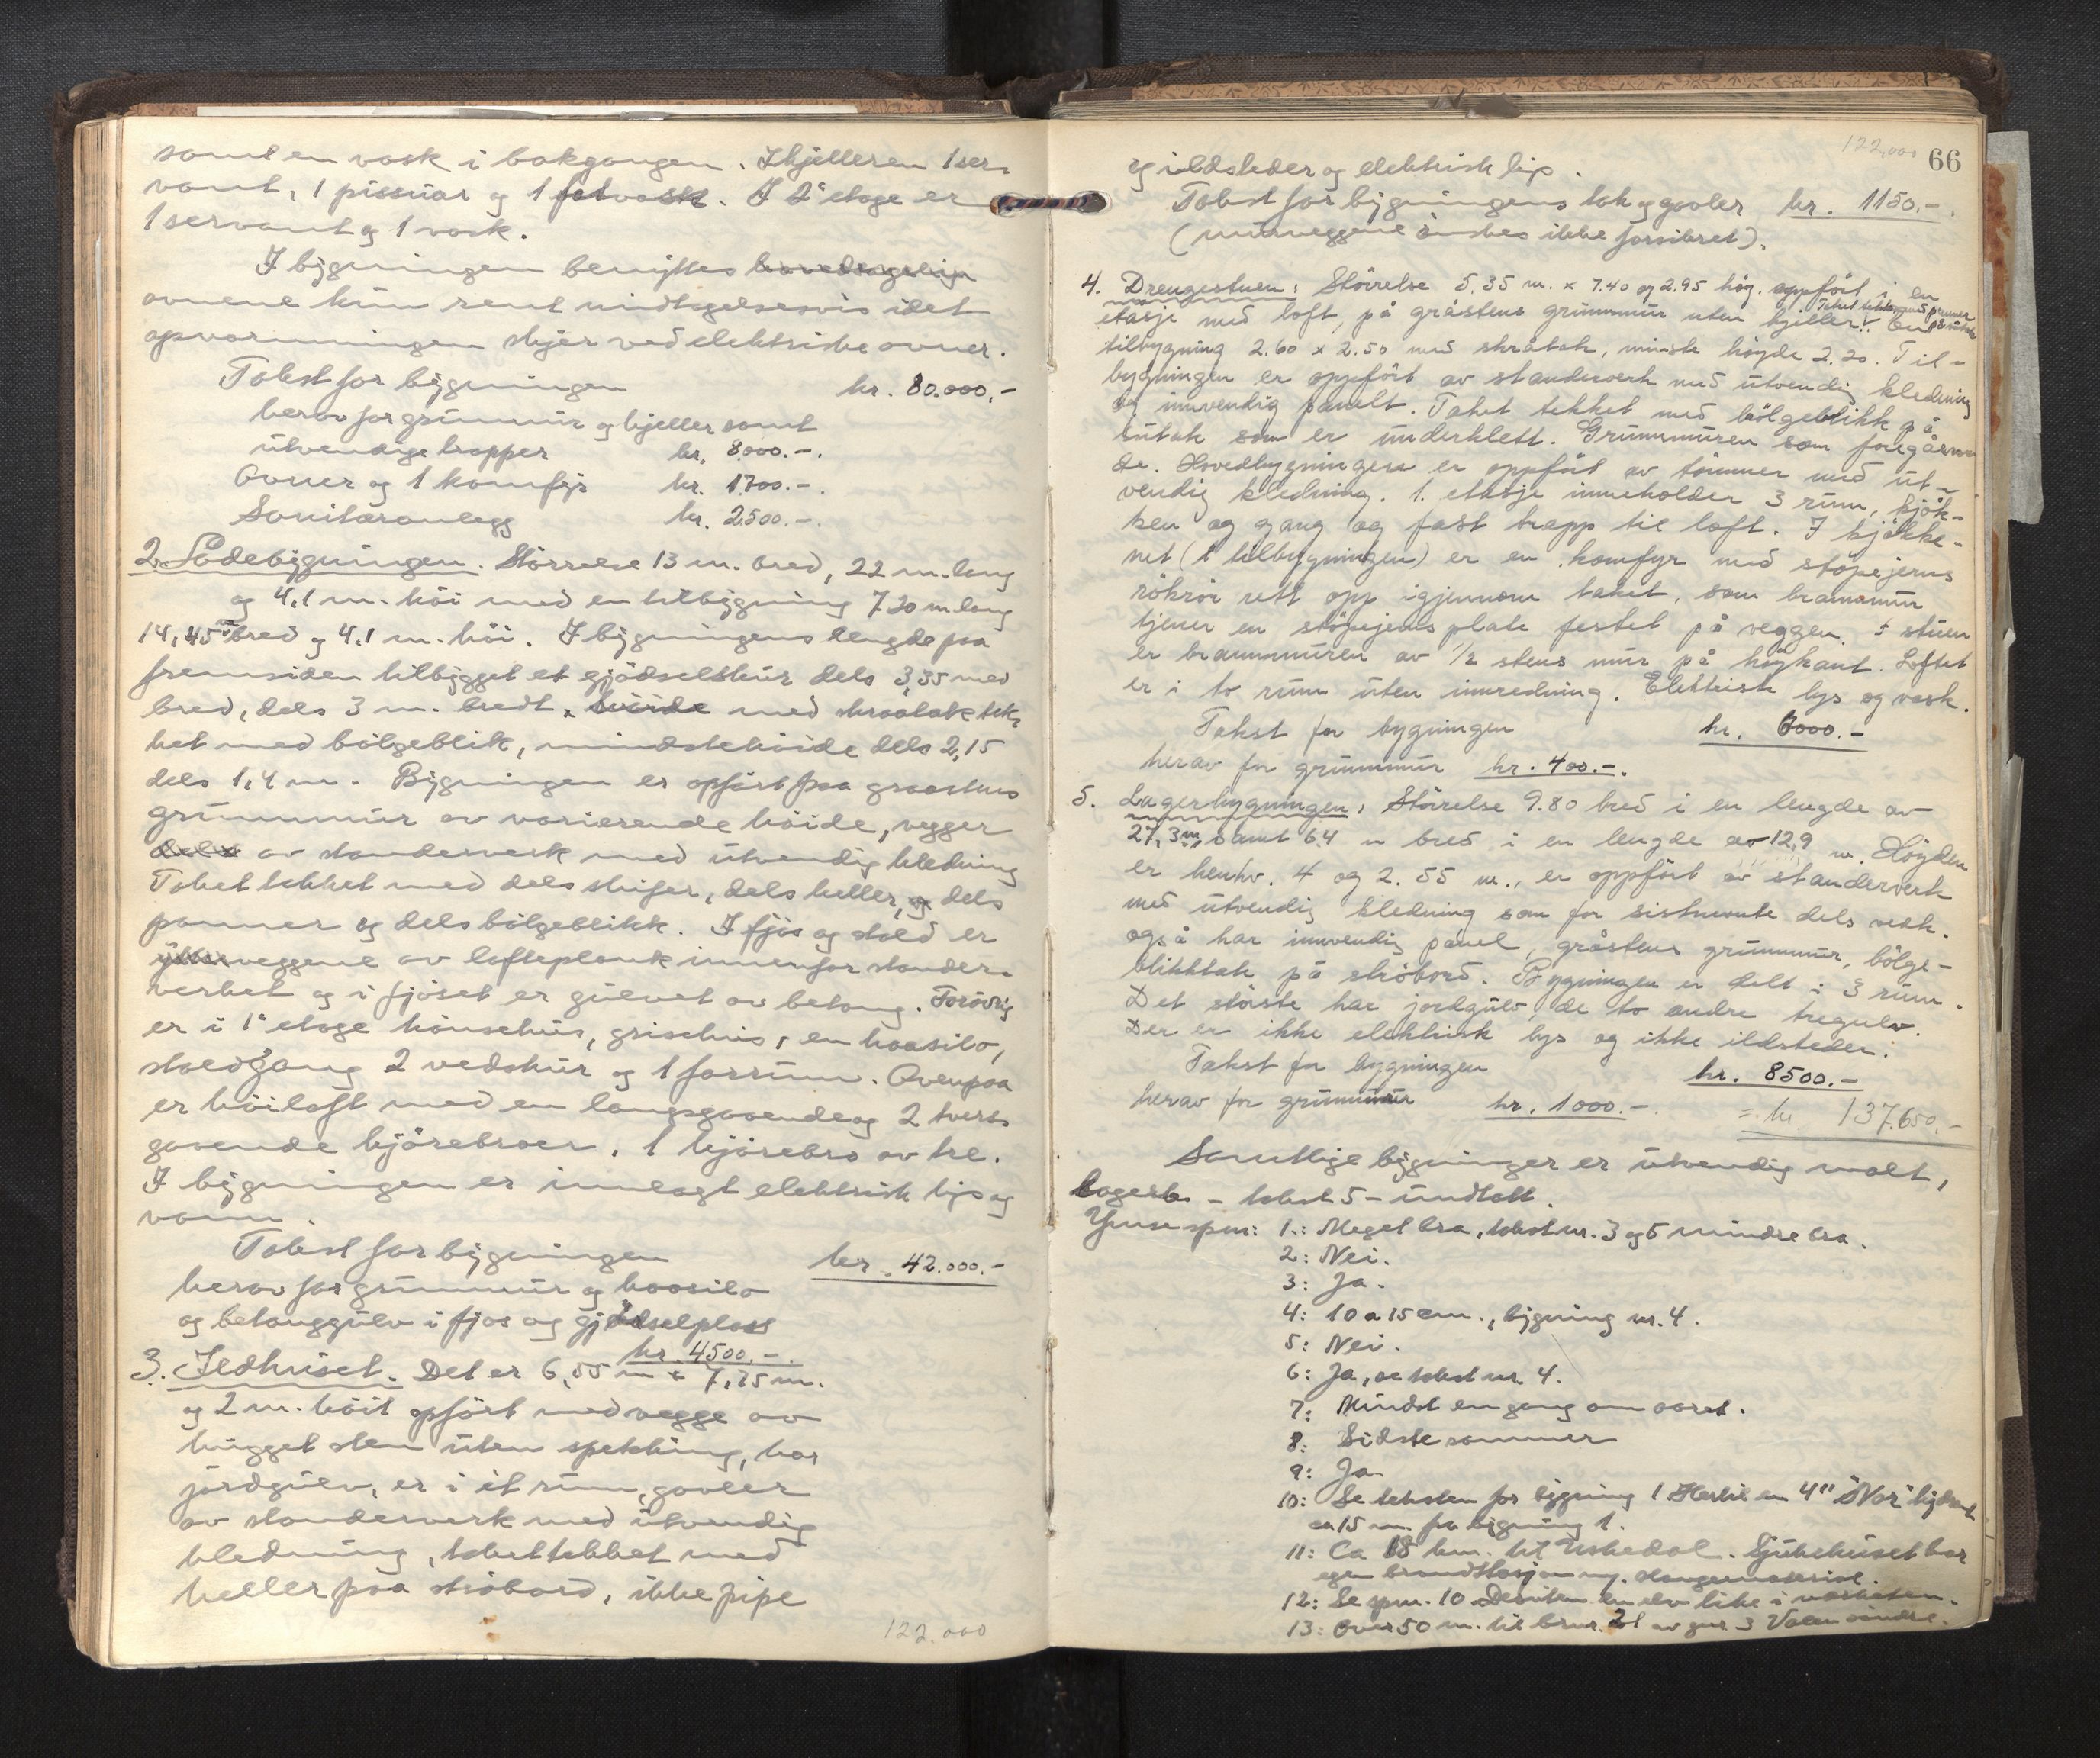 samt en vask i bakgangen. I kjelleren 1 ser-
vant, 1 pissuar og 1 fotvask. I 2' etage er
1 servant og 1 vask.
I bygningen benyttes
ovnene kun rent undtagelsesvis idet
opvarmningen skjer ved elektriske ovner.
Takst for bygningen kr. 80.000,-
herav for grunmur og kjeller samt
utvendige trapper kr. 8000.-.
Ovner og 1 komfyr kr. 1700.-.
Sanitæranlegg kr. 2500.-.
2. Lödebygningen. Störrelse 13 m. bred, 22 m. lang
og 4,1 m. höi med en tilbygning 7.20 m. lang
14,45 m bred og 4,1 m. höi. I bygningens lengde paa
fremsiden tilbygget et gjödselskur dels 3,35 med
bred, dels 3 m. bredt, med skraatak tek-
ket med bölgeblik, mindste höide dels 2,15
dels 1,4 m. Bygningen er opfört paa graastens
grunmur av varierende höide, vegger
dels av standerverk med utvendig kledning
Taket tekket med dels skifer, dels heller, og dels
panner og dels bölgeblikk. I fjös og stald er
ytterveggene av lofteplank innenfor stander-
verket og i fjöset er gulvet av betong. Foröving
er i 1' etage hönsehus, grisehus, en haasilo,
staldgang 2 vedskur og 1 forrum. Ovenpaa
er höiloft med en langsgaaende og 2 tvers
gaaende kjörebroer. 1 kjörebro av tre.
I bygningen er innlagt elektrisk lys og
vann.
Takst for bygningen kr. 42.000.-
herav for grunmur og haasilo
og betonggulv i fjös og gjödselplass
kr. 4500.-.
3. Ildhuset. Det er 6,55 m x 7,75 m.
og 2 m. höit opfört med vegge av
hugget sten uten spekking, har
jordgulv, er i et rum, gavler
av standerverk med utvendig
kledning, taket tekket med
heller paa strøbord, ikke pipe
122.000
122,000 66
og ildsteder og elektrisk lys.
Takst for bygningens tak og gavler kr. 1150.-.
(murveggene önskes ikke forsikret).
4. Drengestuen: Störrelse 5.35 m. x 7.40 og 2.95 höy. oppfört i en
etasje med loft, på gråstens grunnmur uten kjeller. Taket tekket med panner på sutak. En
tilbygning 2.60 x 2.50 med skråtak, minste höyde 2.20. Til-
bygningen er oppfört av standerverk med utvendig kledning
og innvendig panelt. Taket tekket med bölgeblikk på
sutak som er underklett. Grunnmuren som foregåen-
de. Hovedbygningen er oppfört av tömmer med ut-
vendig kledning. 1. etasje inneholder 3 rum, kjök-
ken og gang og fast trapp til loft. I kjökke-
net (i tilbygningen) er en komfyr med støpejerns
rökrör rett opp igjennom taket, som brannmur
tjener en stöpejernsplate festet på veggen. I stuen
er brannmuren av 1/2 stens mur på höykant. Loftet
er i to rum uten innredning. Elektrisk lys og vask.
Takst for bygningen kr. 6000.-
herav for grunnmur kr. 400.-.
5. Lagerbygningen: Störrelse 9.80 bred i en lengde av
27,3 m, samt 6.4 m bred i en lengde av 12,9 m. Höyden
er henhv. 4 og 2.55 m., er oppfört av standerverk
med utvendig kledning som for sistnevnte dels vedk.
også har innvendig panel, gråstens grunnmur, bölge-
blikktak på ströbord. Bygningen er delt i 3 rum.
Det störste har jordgulv, de to andre tregulv.
Der er ikke elektrisk lys og ikke ildsteder.
Takst for bygningen kr. 8500.-
herav for grunnmur kr. 1000.-. = kr. 137.650.-
Samtlige bygninger er utvendig malt,
lagerb. - takst 5 - undtatt.
spm: 1.: Meget bra, takst nr. 3 og 5 mindre bra.
2: Nei.
3: Ja.
4: 10 a 15 cm., bygning nr. 4.
5: Nei.
6: Ja, se takst nr. 4.
7: Mindst en gang om aaret.
8: Sidste sommer
9: Ja
10: Se teksten for bygning 1 Hertil en 4" "Nor" hydrant
ca 15 m. fra bygning 1.
11: Ca 18 km. til Uskedal. Sjukehuset har
egen brandstasjon m/ slangemateriel.
12: Se spm. 10 Desuten en elv like i nærheten.
13: Over 50 m. til brnr. 21 av gnr 3 Valen söndre.